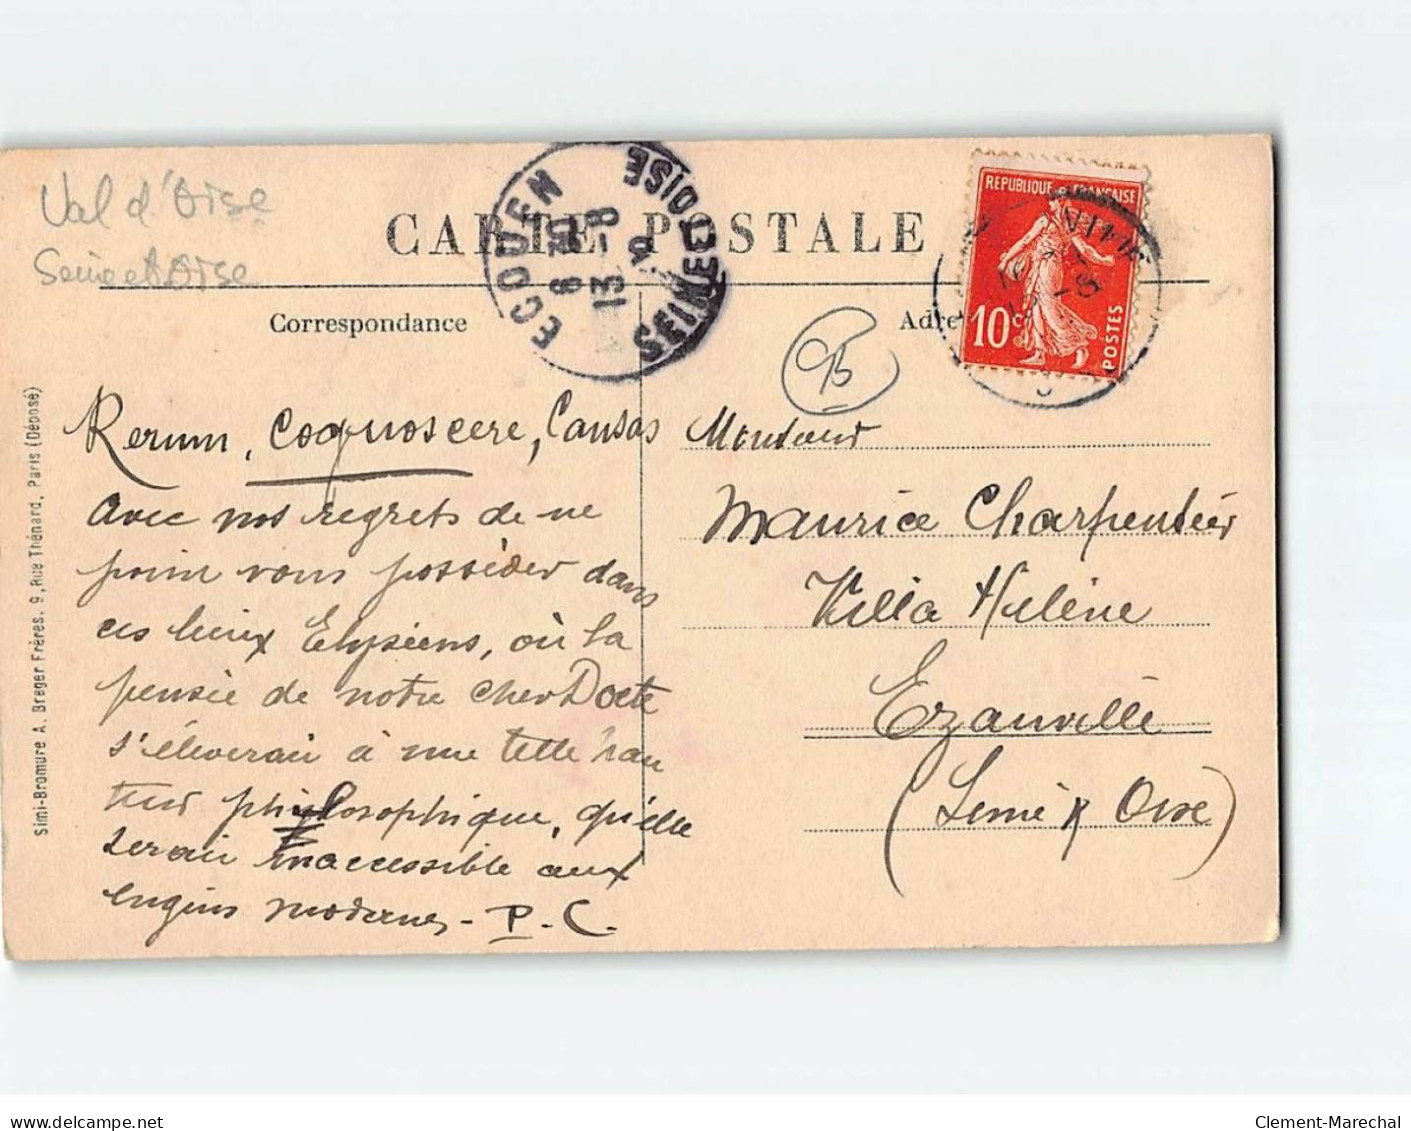 Val d'Oise
Seine et Oise
CARTE POSTALE
ECOUEN
8 30
13 - 8
9
SEINE ET OISE
REPUBLIQUE FRANÇAISE
10 c
POSTES
Correspondance
Adre
95
Simi-Bromure A. Breger Frères. 9, Rue Thénard, Paris (Déposé)
Rerum, cognoscere, Causas
avec nos regrets de ne
point vous posséder dans
ces lieux Elyséens, où la
pensée de notre cher Docte
s'élèverait à une telle hau
teur philosophique, qu'elle
serait inaccessible aux
engins modernes - P. C.
Monsieur
Maurice Charpentier
Villa Hélène
Ezanville
(Seine & Oise)
delcampe.net
Clement-Marechal